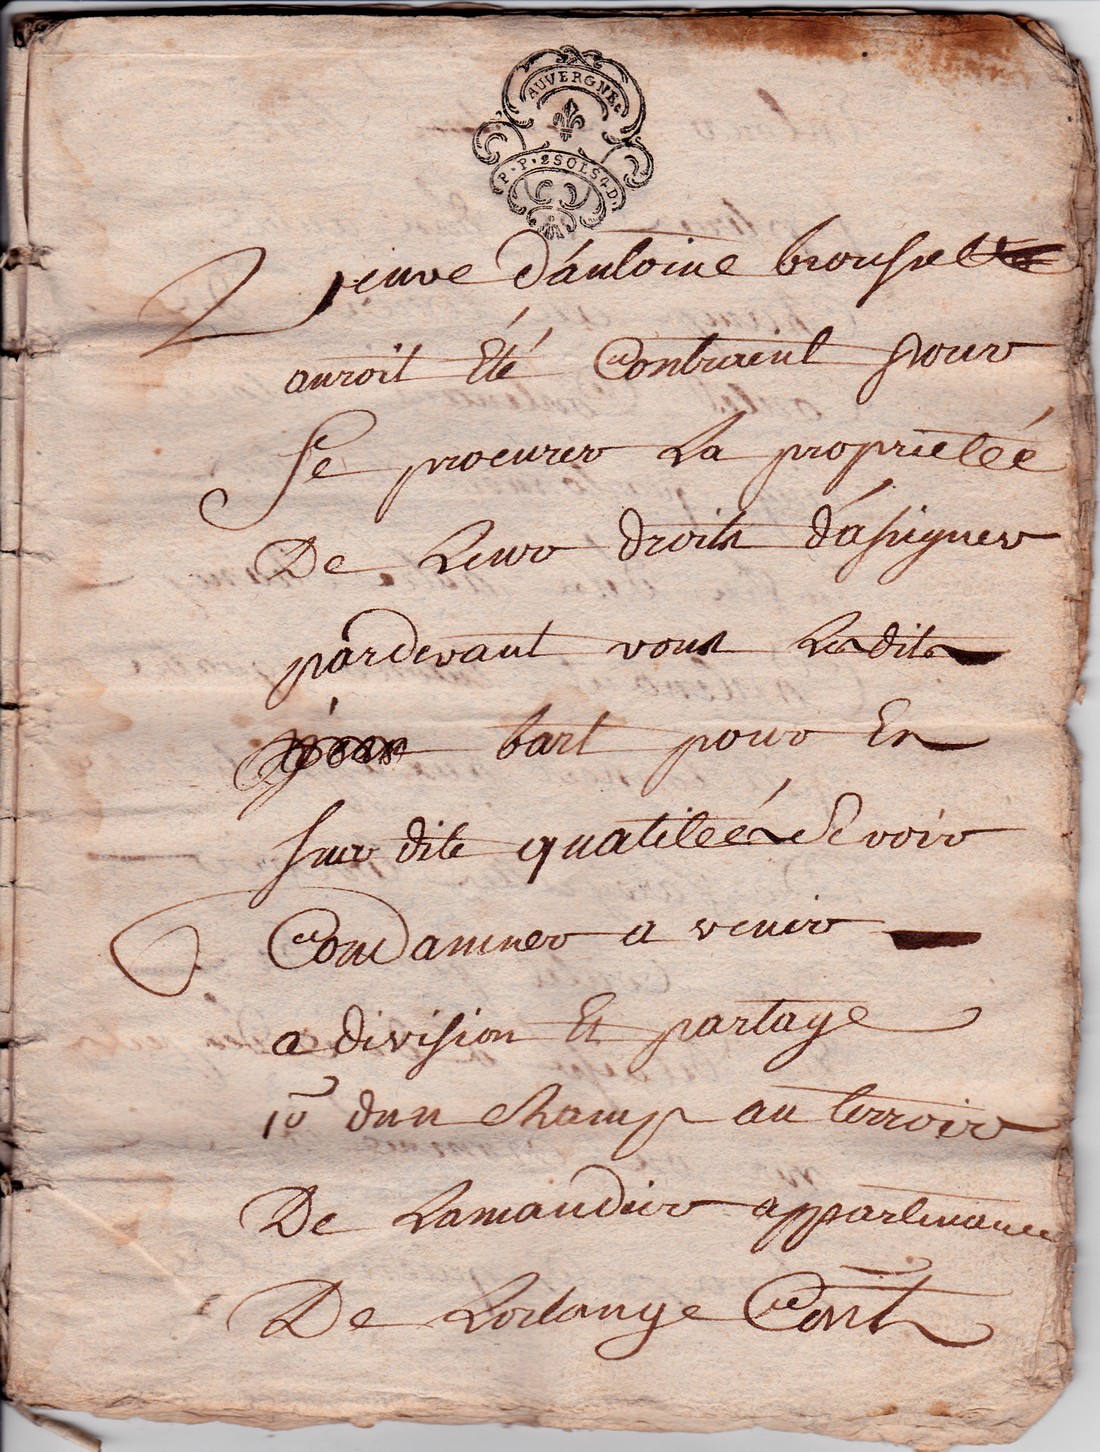 AUVERGNE
P.P. 2 SOLS 4 D.
veuve d'antoine brousse
auroit été Contraint pour
se procurer La proprieteé
De Leurs droits d'assigner
pardevant vous Lesdits
bart pour En
sur dite qualiteé Se voir
Condamner a venir
a division Et partage
1o dun champ au terroir
De Lamaudier appartenance
De Lorlange Cont